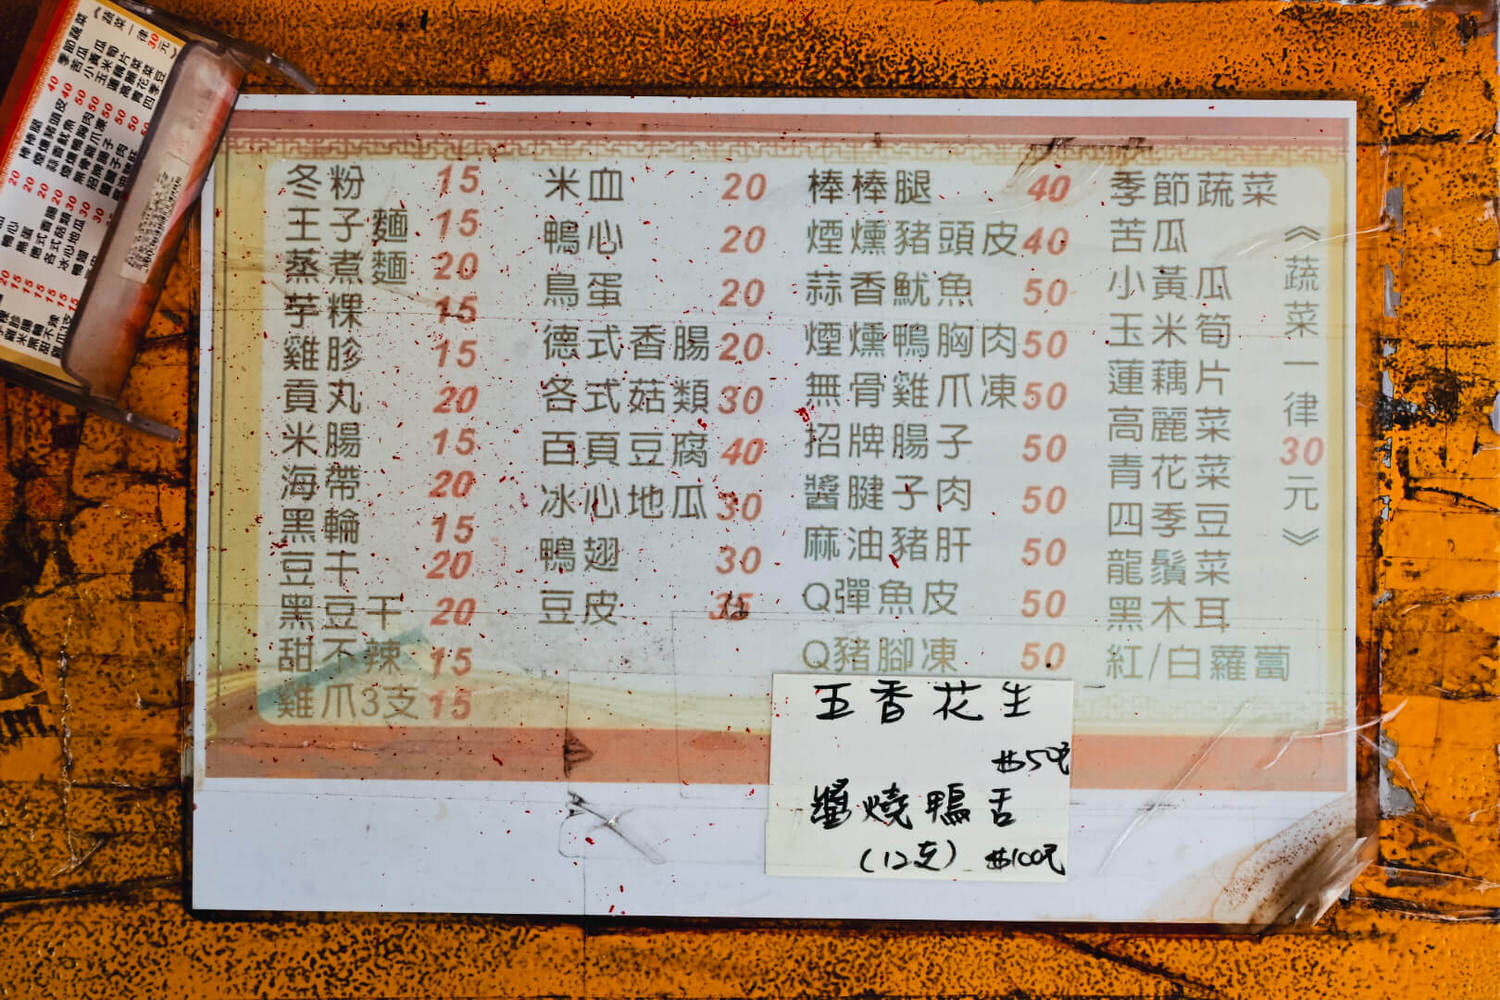 冬粉 15
王子麵 15
蒸煮麵 20
芋粿 15
雞胗 15
貢丸 20
米腸 15
海帶 20
黑輪 15
豆干 20
黑豆干 20
甜不辣 15
雞爪3支 15
米血 20
鴨心 20
鳥蛋 20
德式香腸 20
各式菇類 30
百頁豆腐 40
冰心地瓜 30
鴨翅 30
豆皮 35
棒棒腿 40
煙燻豬頭皮 40
蒜香魷魚 50
煙燻鴨胸肉 50
無骨雞爪凍 50
招牌腸子 50
醬腱子肉 50
麻油豬肝 50
Q彈魚皮 50
Q豬腳凍 50
季節蔬菜
苦瓜
小黃瓜
玉米筍
蓮藕片
高麗菜
青花菜
四季豆
龍鬚菜
黑木耳
紅/白蘿蔔
《蔬菜一律30元》
五香花生
50元
燒鴨舌
(12支) 100元